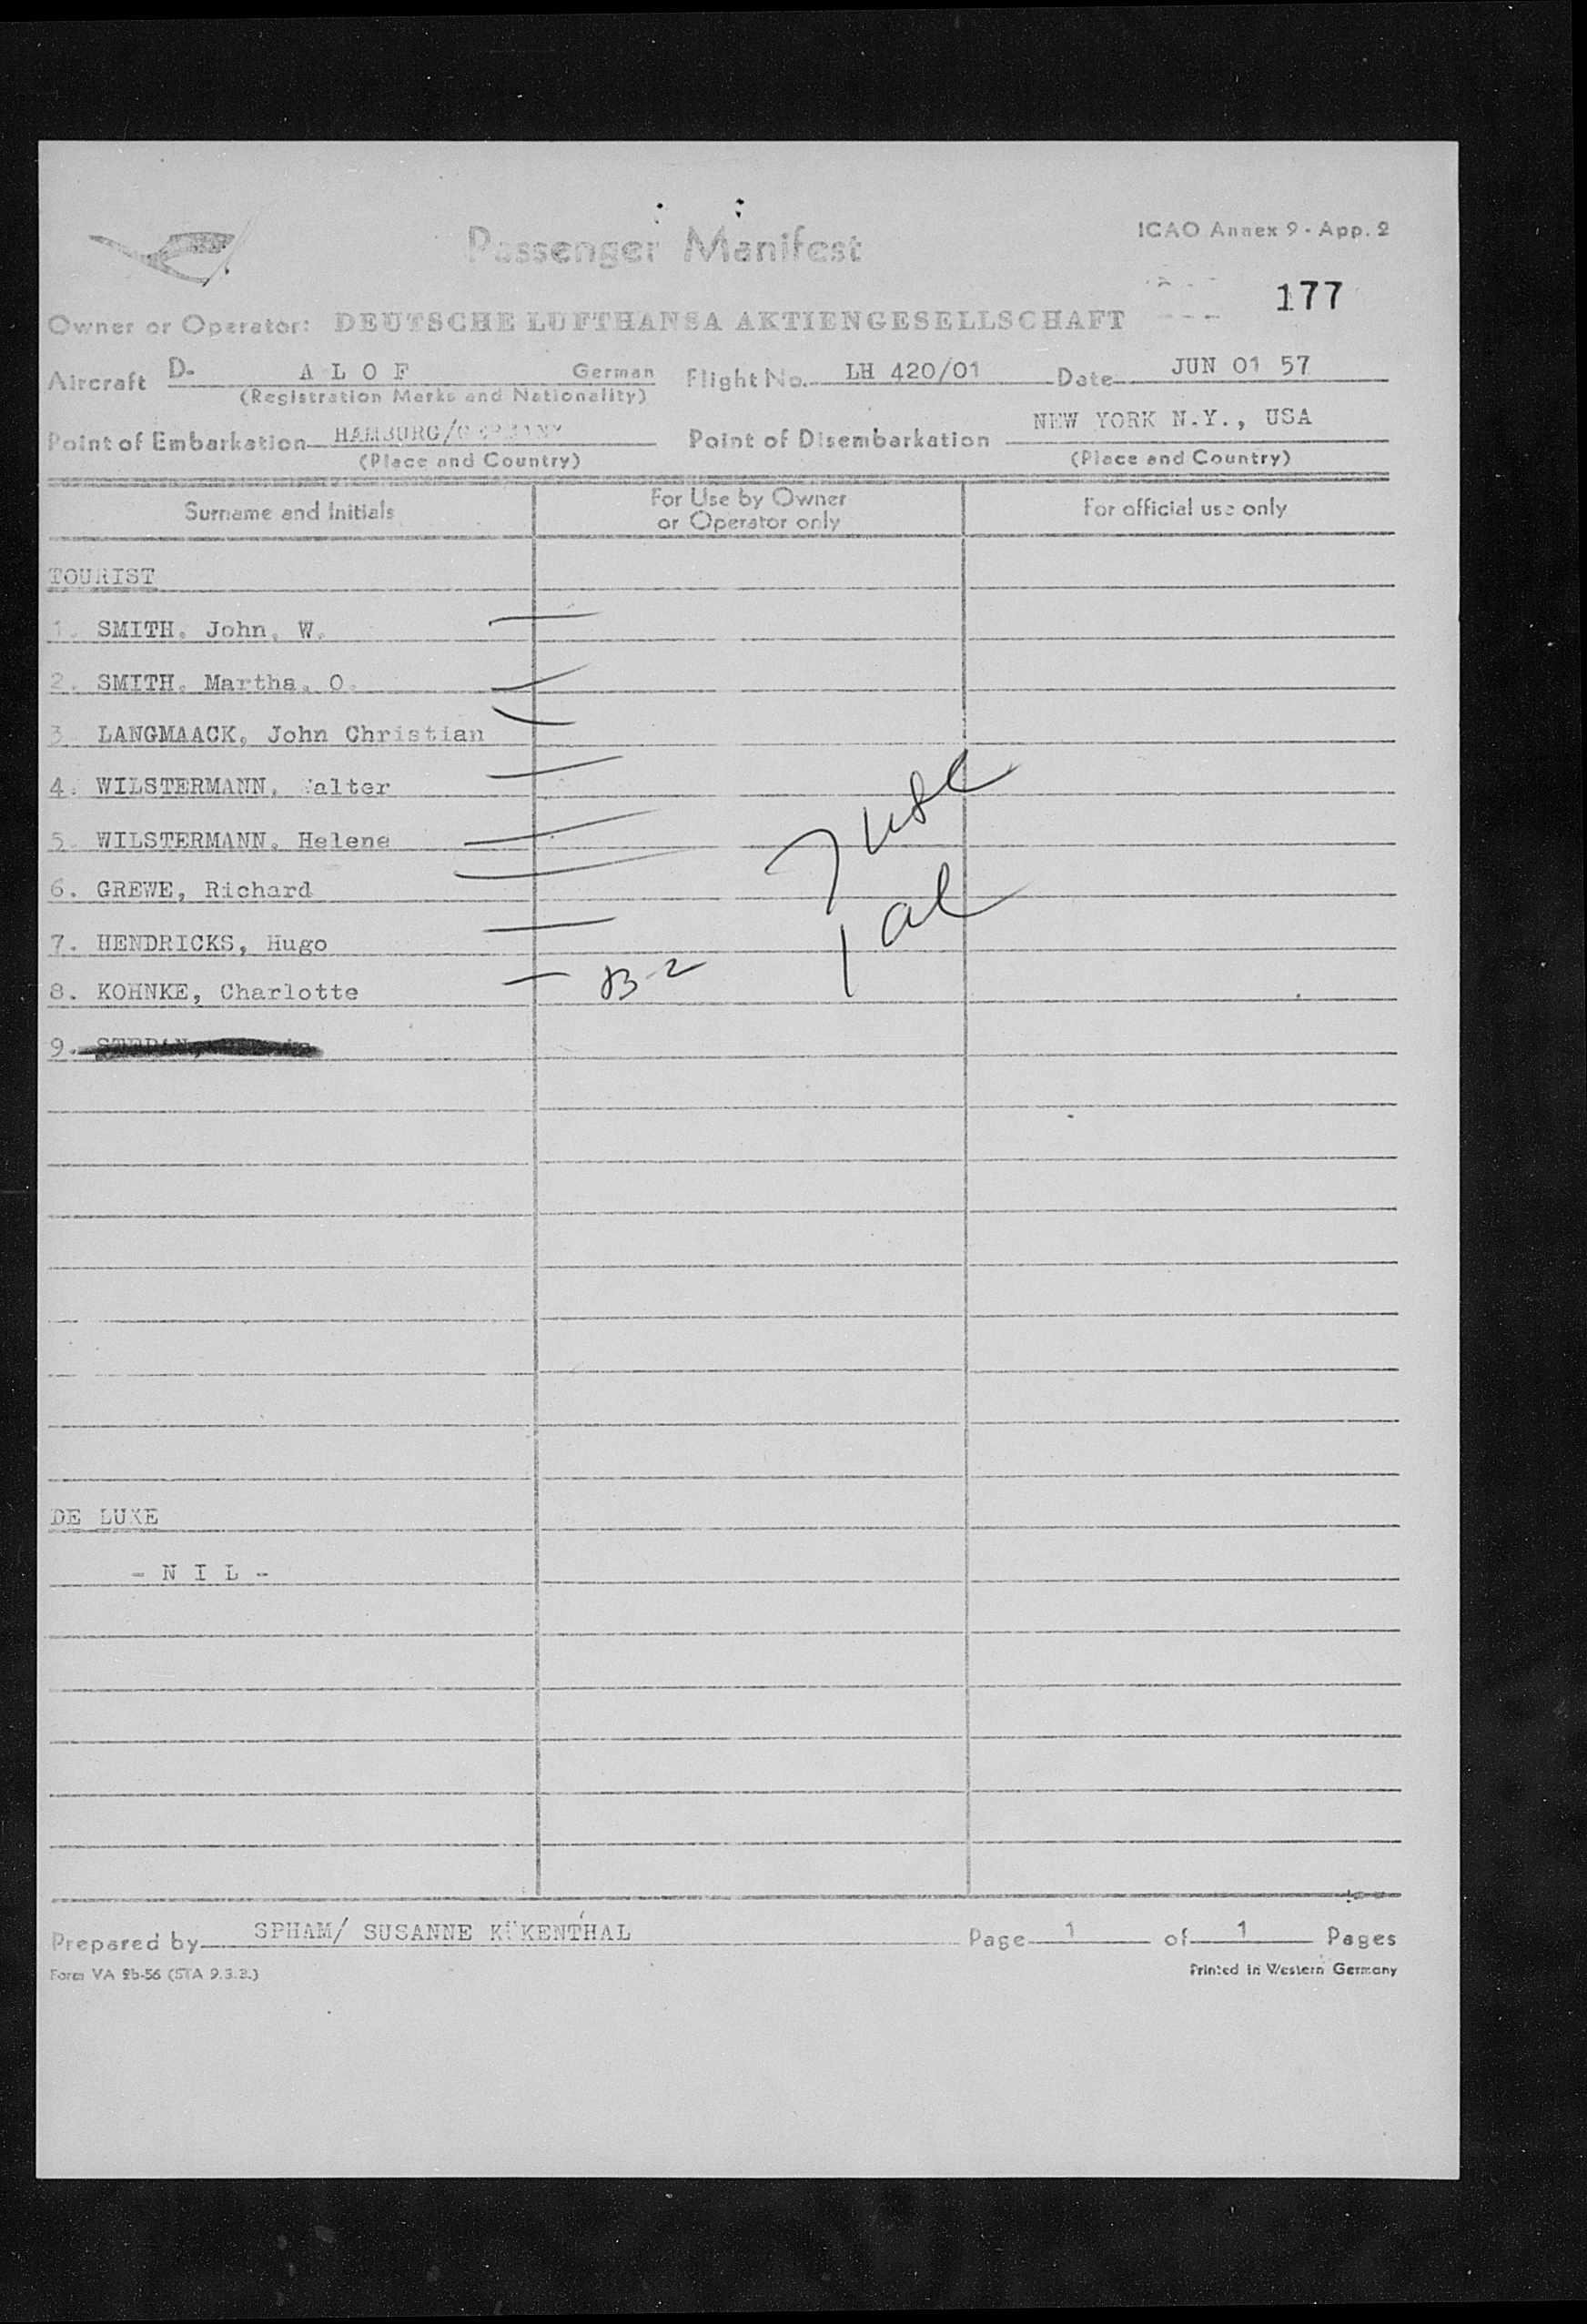 Passenger Manifest
ICAO Annex 9 - App. 2
177
Owner or Operator: DEUTSCHE LUFTHANSA AKTIENGESELLSCHAFT
Aircraft D- A L O F German Flight No. LH 420/01 Date JUN 01 57
(Registration Marks and Nationality)
Point of Embarkation HAMBURG/GERMANY Point of Disembarkation NEW YORK N.Y., USA
(Place and Country) (Place and Country)
Surname and Initials For Use by Owner or Operator only For official use only
TOURIST
1. SMITH, John, W.
2. SMITH, Martha, O.
3. LANGMAACK, John Christian
4. WILSTERMANN, Walter
5. WILSTERMANN, Helene
6. GREWE, Richard
7. HENDRICKS, Hugo
8. KOHNKE, Charlotte B-2
7 usc
1 al
9.
DE LUXE
- N I L -
Prepared by SPHAM/ SUSANNE KÜKENTHAL Page 1 of 1 Pages
Form VA 2b-56 (STA 9.3.2.) Printed in Western Germany